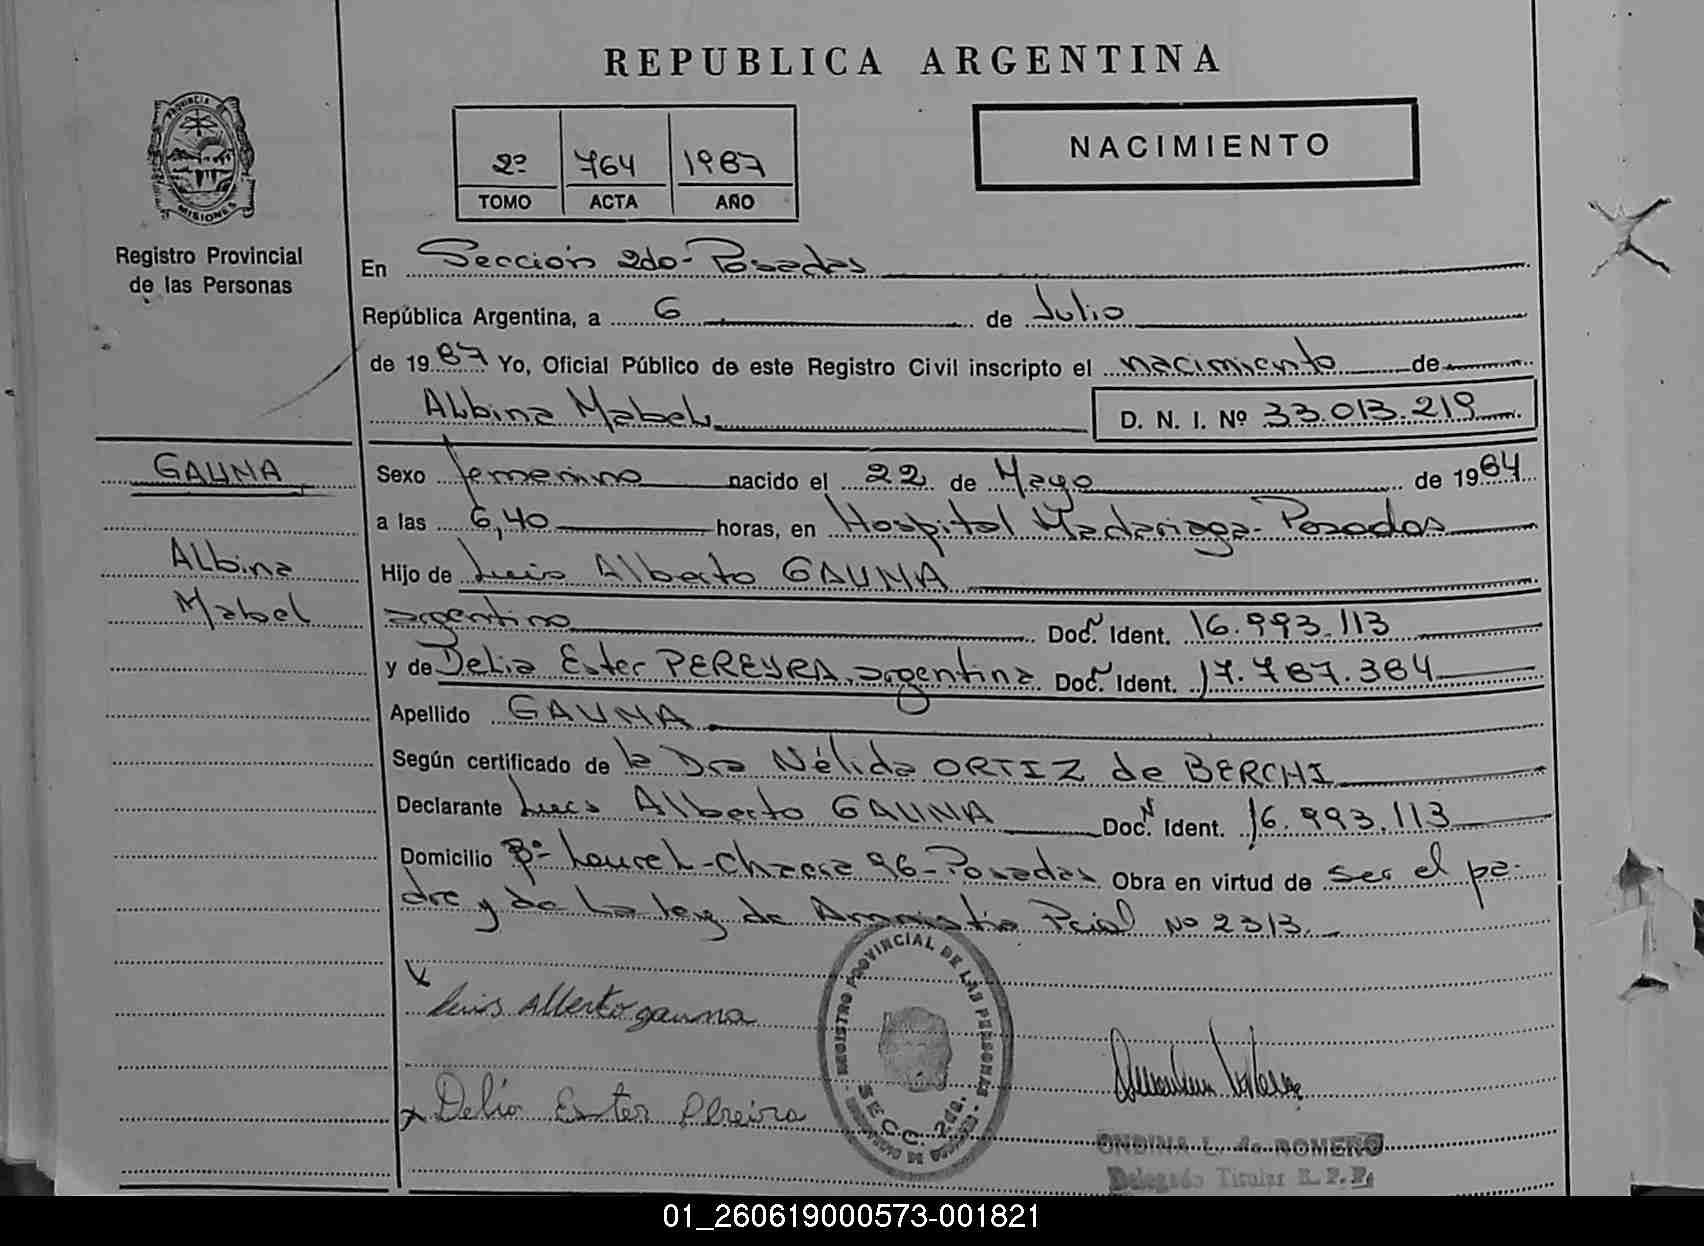 REPUBLICA ARGENTINA
PROVINCIA DE MISIONES
Registro Provincial
de las Personas
2º 764 1987
TOMO ACTA AÑO
NACIMIENTO
En Sección 2do - Posadas
República Argentina, a 6 de Julio
de 1987 Yo, Oficial Público de este Registro Civil inscripto el nacimiento de
Albina Mabel D. N. I. Nº 33.013.219
GAUNA
Albina
Mabel
Sexo femenino nacido el 22 de Mayo de 1984
a las 6,40 horas, en Hospital Madariaga - Posadas
Hijo de Luis Alberto GAUNA
argentino Doc. N Ident. 16.993.113
y de Delia Ester PEREYRA, argentina Doc. N Ident. 17.787.384
Apellido GAUNA
Según certificado de la Dra Nélida ORTIZ de BERCHI
Declarante Luis Alberto GAUNA Doc. N Ident. 16.993.113
Domicilio Bº Laurel - Chacra 96 - Posadas Obra en virtud de ser el pa-
dre y de la ley de Amnistia Pcial Nº 2313.
Luis Alberto gauna
x Delia Ester Pereira
REGISTRO PROVINCIAL DE LAS PERSONAS
SECC. 2da.
ONDINA L. de ROMERO
Delegado Titular R. P. P.
01_260619000573-001821